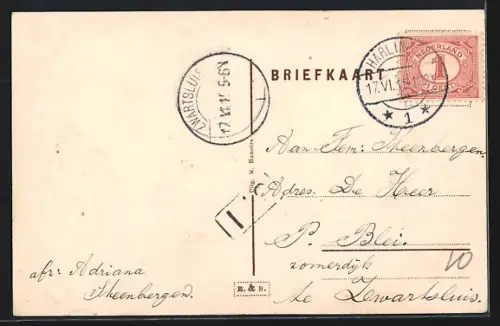 BRIEFKAART
HARLIN
17.VI.1
★ 1 ★
NEDERLAND
1
CENT
ZWARTSLUIS
17.VI.1 5-6N
1
Aan Fem: Steenbergen
Adres. De Heer
P. Blei.
zomerdijk
te Zwartsluis.
10
1
afr: Adriana
Steenbergen.
E. & B.